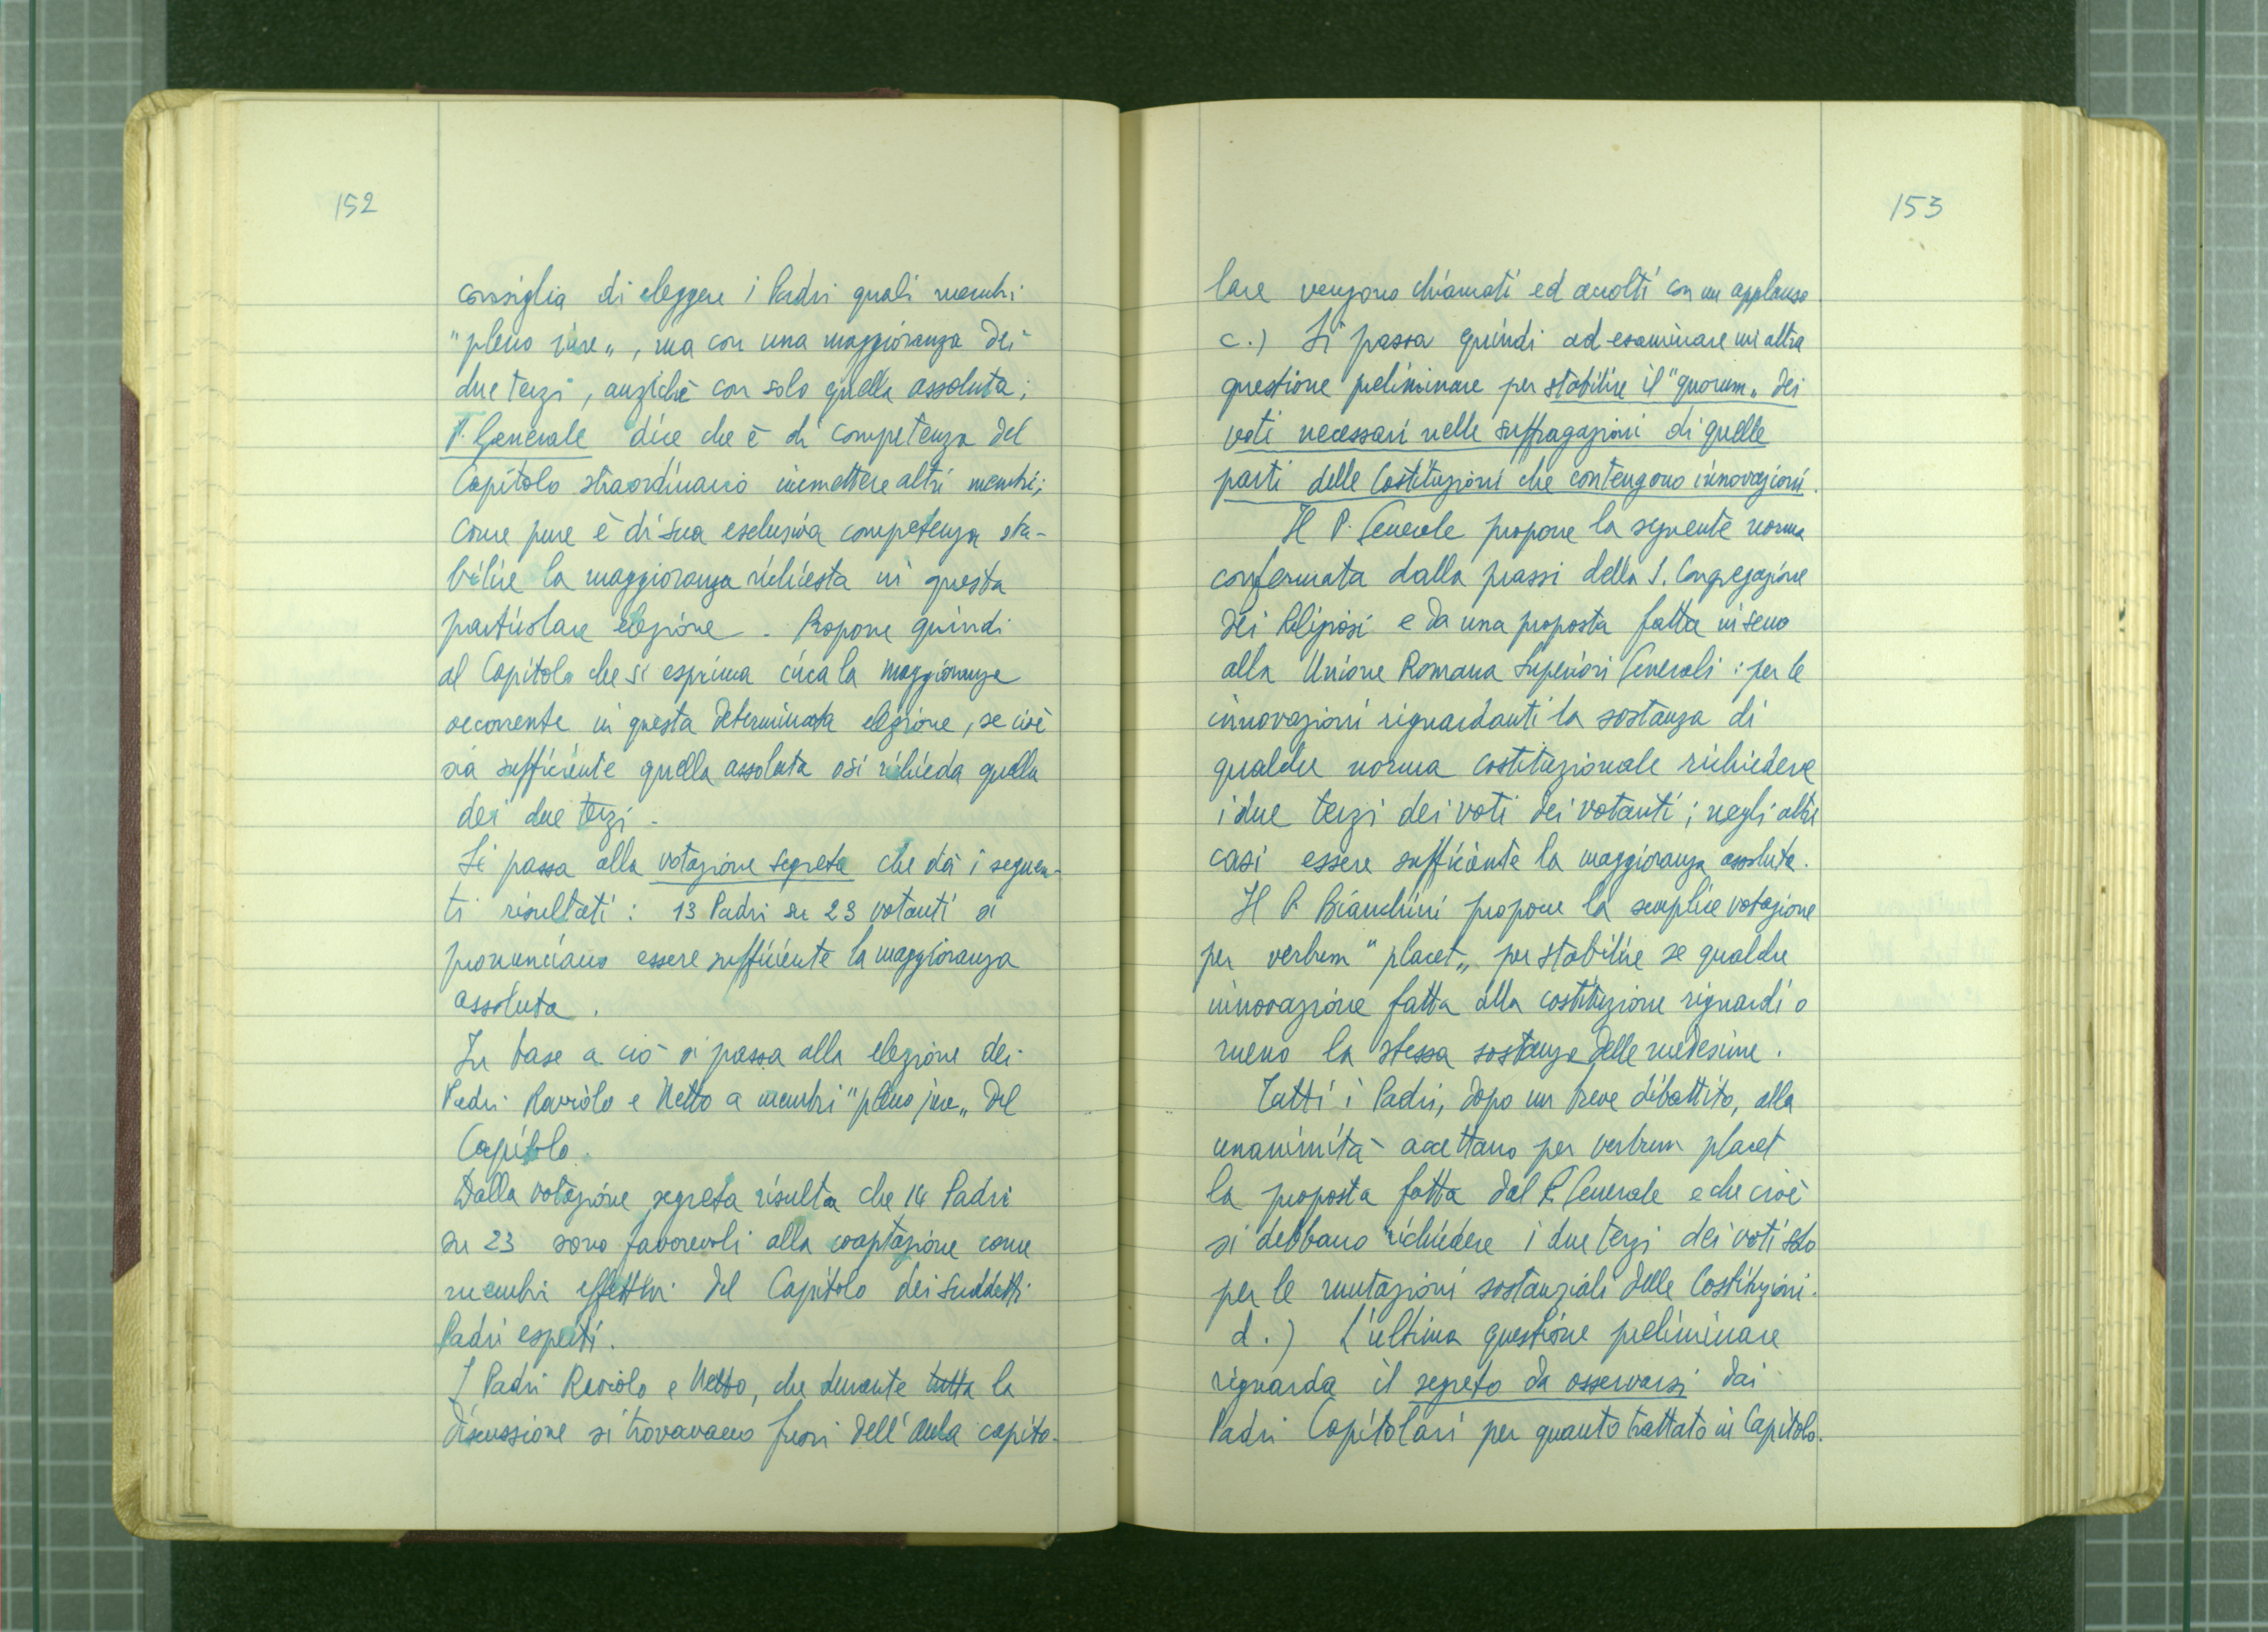 152
consiglia di eleggere i Padri quali membri
"pleno iure", ma con una maggioranza dei
due terzi, anziché con solo quella assoluta;
P. Generale dice che è di competenza del
Capitolo straordinario immettere altri membri;
come pure è di sua esclusiva competenza sta-
bilire la maggioranza richiesta in questa
particolare elezione. Propone quindi
al Capitolo che si esprima circa la maggioranza
occorrente in questa determinata elezione, se cioè
sia sufficiente quella assoluta o si richieda quella
dei due terzi.
Si passa alla votazione segreta che dà i seguen-
ti risultati: 13 Padri su 23 votanti si
pronunciano essere sufficiente la maggioranza
assoluta.
In base a ciò si passa alla elezione dei
Padri Raviolo e Netto a membri "pleno jure" del
Capitolo.
Dalla votazione segreta risulta che 14 Padri
su 23 sono favorevoli alla cooptazione come
membri effettivi del Capitolo dei suddetti
Padri esperti.
I Padri Raviolo e Netto, che durante tutta la
discussione si trovavano fuori dell'aula capito-
153
lare vengono chiamati ed accolti con un applauso.
c.) Si passa quindi ad esaminare un'altra
questione preliminare per stabilire il "quorum" dei
voti necessari nelle suffragazioni di quelle
parti delle Costituzioni che contengono innovazioni.
Il P. Generale propone la seguente norma
confermata dalla prassi della S. Congregazione
dei Religiosi e da una proposta fatta in seno
alla Unione Romana Superiori Generali: per le
innovazioni riguardanti la sostanza di
qualche norma costituzionale richiedere
i due terzi dei voti dei votanti; negli altri
casi essere sufficiente la maggioranza assoluta.
Il P. Bianchini propone la semplice votazione
per verbum "placet" per stabilire se qualche
innovazione fatta alla costituzione riguardi o
meno la stessa sostanza delle medesime.
Tutti i Padri, dopo un breve dibattito, alla
unanimità accettano per verbum placet
la proposta fatta dal P. Generale e che cioè
si debbano richiedere i due terzi dei voti solo
per le mutazioni sostanziali delle Costituzioni.
d.) L'ultima questione preliminare
riguarda il segreto da osservarsi dai
Padri Capitolari per quanto trattato in Capitolo.